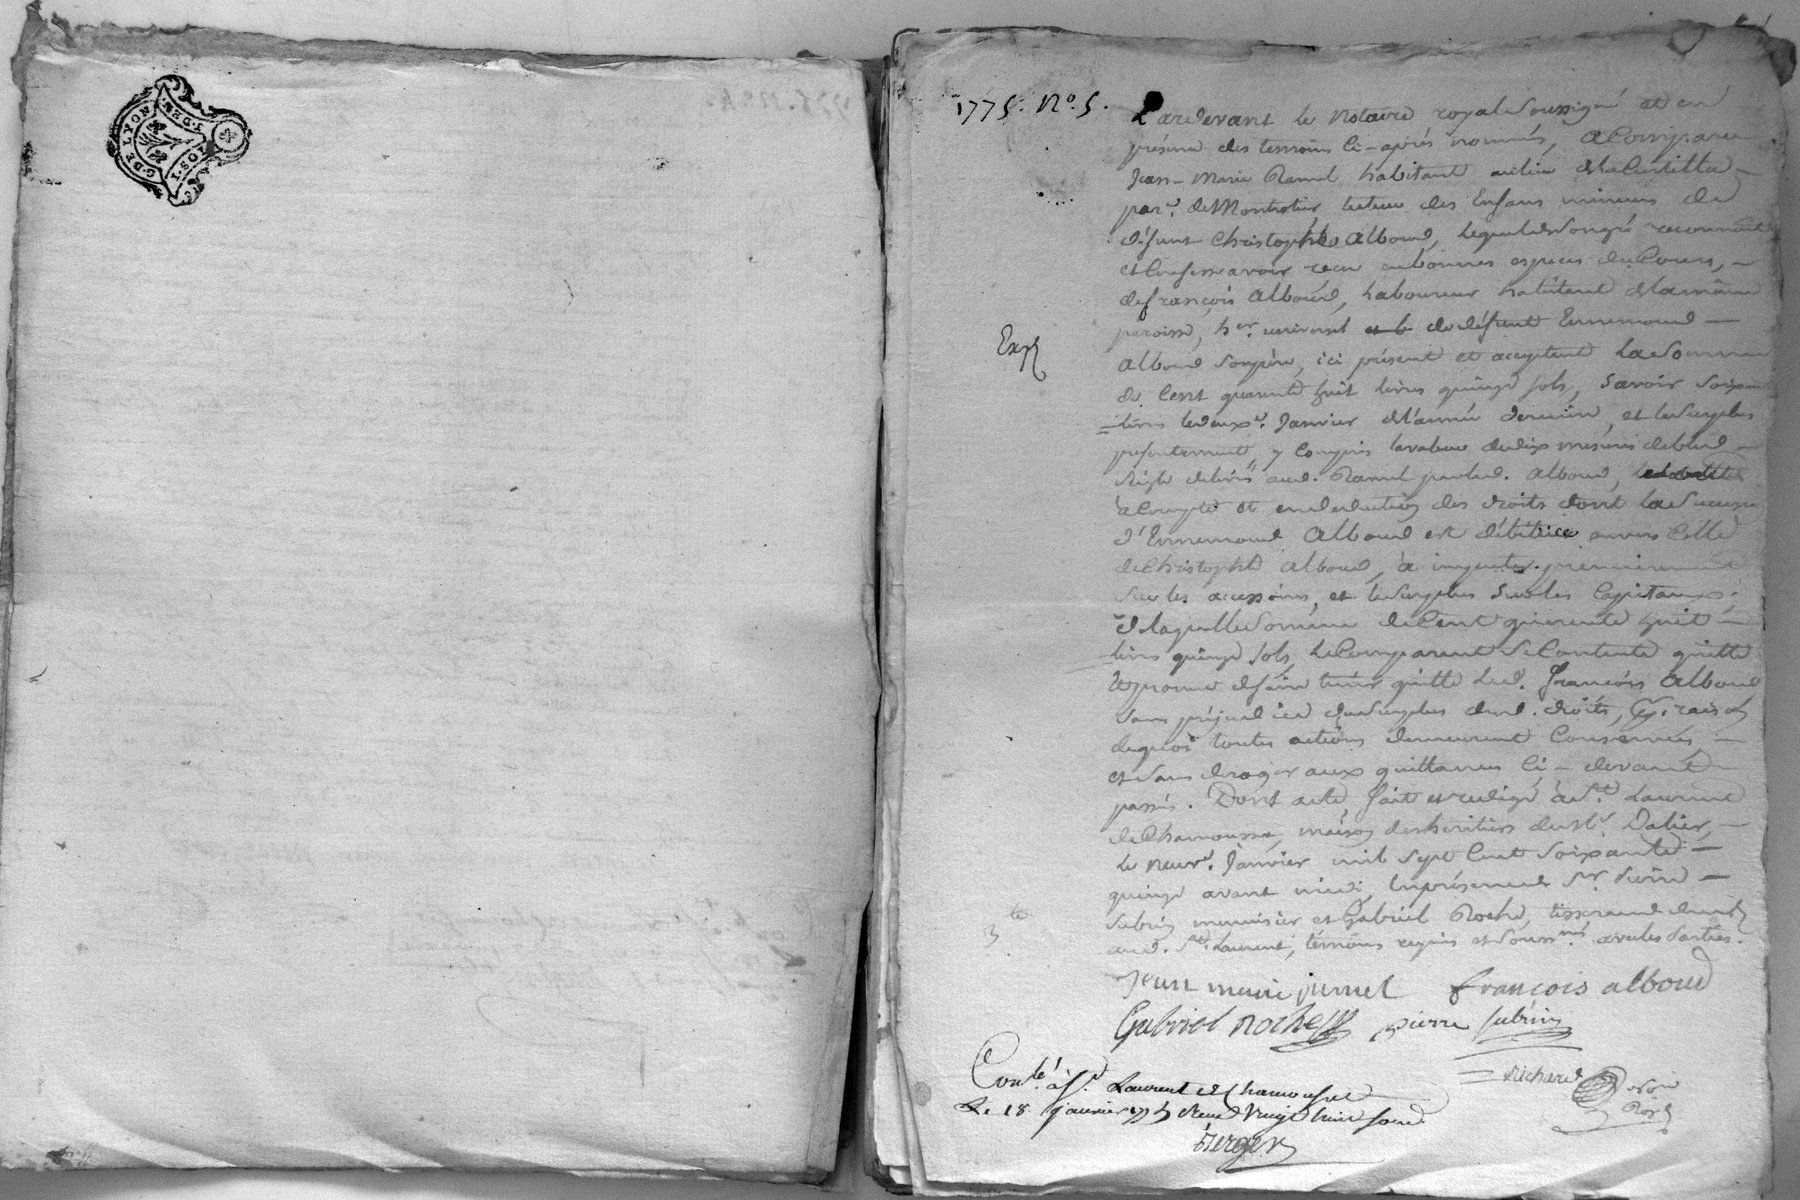 G. DE LYON
1. SOL
1775. N.º 5.
Pardevant le Notaire royal Soussigné et en
présence des temoins Ci-après nommés, a Comparu
Jean-Marie Ramel habitant au lieu de
par.e de Montrotier tuteur des Enfans mineurs de
défunt Christophle Alboud, lequel de Son gré reconnoit
et Confesse avoir reçu en bonnes especes du Cours, -
de françois Alboud, laboureur habitant de la même
paroisse, h.er universel de défunt Ennemond -
Alboud Son père, ici présent et acceptant la Somme
de Cent quarente huit livres quinze sols, Savoir Soixante
livres le deux.e Janvier de l'année derniere, et le Surplus
presentement, y Compris la valeur de dix mesures de bled -
Seigle delivrés aud. Ramel par led. Alboud,
à Compte et en deduction des droits dont la Succession
d'Ennemond Alboud est débitrice envers Celle
de Christophle Alboud, à imputer premierement
Sur les accessoires, et le Surplus Sur les Capitaux.
de laquelle Somme de Cent quarente huit -
livres quinze sols, le Comparant Se Contente quitte
et promet de faire tenir quitte led. François Alboud
Sans préjudice du Surplus desd. droits, raison
de quoi toutes actions demeurent Conservées -
et Sans deroger aux quittances Ci-devant
passés. Dont acte, fait et redigé à S.t Laurent
de Chamousset, maison des heritiers du Sr. Dalier, -
le neuv.e Janvier mil Sept Cent Soixante -
quinze avant midi, En présence de Sr. Pierre -
Subrin menuisier et Gabriel Roche, tisserand dem.t
aud. S.t Laurent, témoins requis et Souss.nés avec les Parties.
Jean marie françois alboud
Gabriel Roche pierre Subrin
Richard
Not.re
Roy.l
Con.lé à S.t Laurent de Chamousset
Le 18 janvier 1775 Reçu Vingt huit sous
Berger